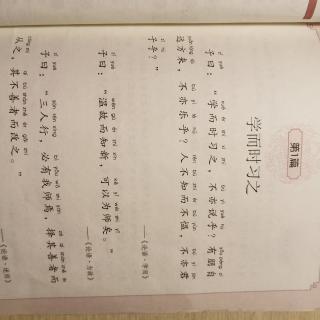 第1篇
学而时习之
zǐ yuē xué ér shí xí zhī bú yì yuè hū yǒu péng zì
子曰：“学而时习之，不亦说乎？有朋自
yuǎn fāng lái bú yì lè hū rén bù zhī ér bú yùn bú yì jūn
远方来，不亦乐乎？人不知而不愠，不亦君
zǐ hū
子乎？”
——《论语·学而》
zǐ yuē wēn gù ér zhī xīn kě yǐ wéi shī yǐ
子曰：“温故而知新，可以为师矣。”
——《论语·为政》
zǐ yuē sān rén xíng bì yǒu wǒ shī yān zé qí shàn zhě ér
子曰：“三人行，必有我师焉，择其善者而
cóng zhī qí bú shàn zhě ér gǎi zhī
从之，其不善者而改之。”
——《论语·述而》